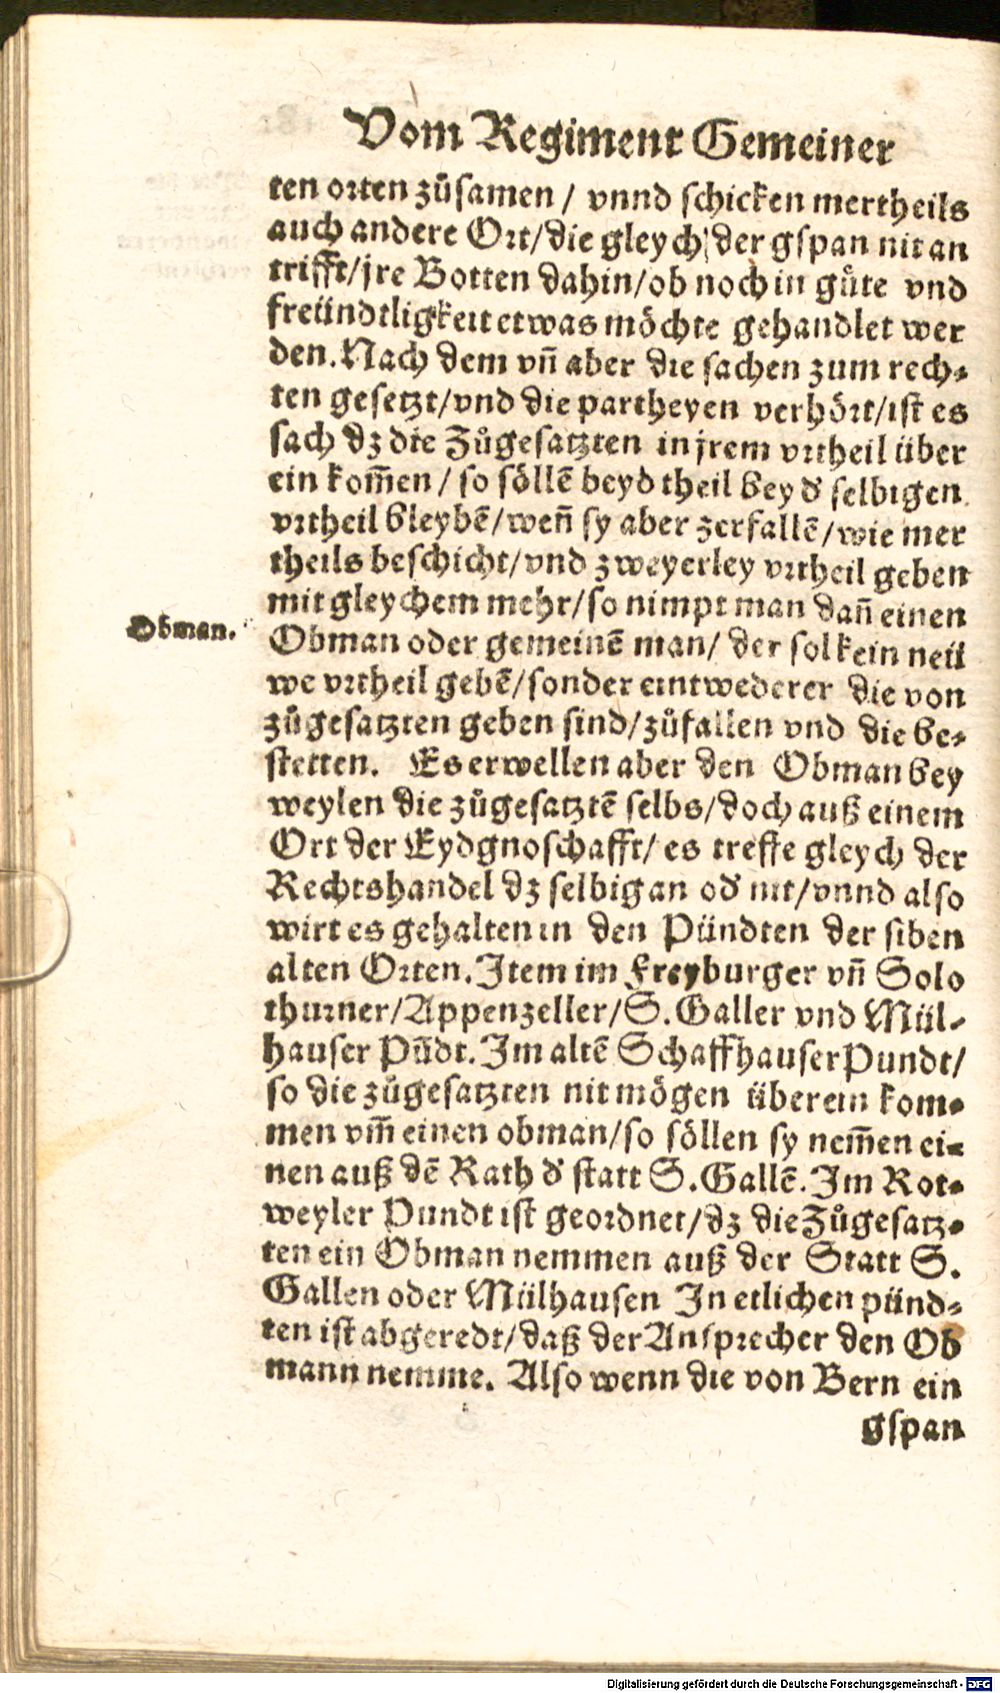 Vom Regiment Gemeiner
ten orten zůsamen / vnnd schicken mertheils
auch andere Ort/die gleych der gspan nit an
trifft/jre Botten dahin/ob noch in gůte vnd
freündtligkeit etwas möchte gehandlet wer
den. Nach dem vñ aber die sachen zum rech⸗
ten gesetzt/vnd die partheyen verhört/ist es
sach dz die Zůgesatzten in jrem vrtheil über
ein kom̃en / so söllē beyd theil bey d' selbigen
vrtheil bleybē/weñ sy aber zerfallē/wie mer
theils beschicht/vnd zweyerley vrtheil geben
mit gleychem mehr/so nimpt man dañ einen
Obman.
Obman oder gemeinē man/ der sol kein neü
we vrtheil gebē/sonder eintwederer die von
zůgesatzten geben sind/zůfallen vnd die be⸗
stetten. Es erwellen aber den Obman bey
weylen die zůgesatztē selbs/doch auß einem
Ort der Eydgnoschafft/ es treffe gleych der
Rechtshandel dz selbig an od' nit/vnnd also
wirt es gehalten in den Pündten der siben
alten Orten. Item im Freyburger vñ Solo
thurner/Appenzeller/S. Galler vnd Mül⸗
hauser Pũdt. Im altē Schaffhauser Pundt/
so die zůgesatzten nit mögen überein kom⸗
men vm̃ einen obman/so söllen sy nem̃en ei⸗
nen auß dē Rath d' statt S. Gallē. Im Rot⸗
weyler Pundt ist geordnet/dz die Zůgesatz⸗
ten ein Obman nemmen auß der Statt S.
Gallen oder Mülhausen In etlichen pünd⸗
ten ist abgeredt/daß der Ansprecher den Ob
mann nemme. Also wenn die von Bern ein
gspan
Digitalisierung gefördert durch die Deutsche Forschungsgemeinschaft - DFG